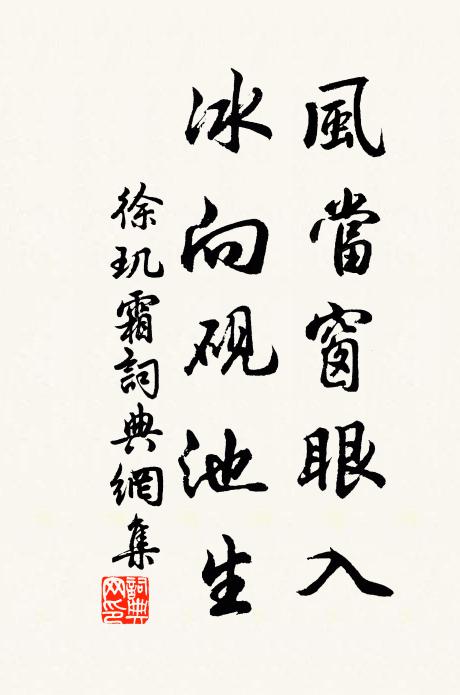 風當窗眼入
冰向硯池生
徐玑霜詞典網集
詞典網印